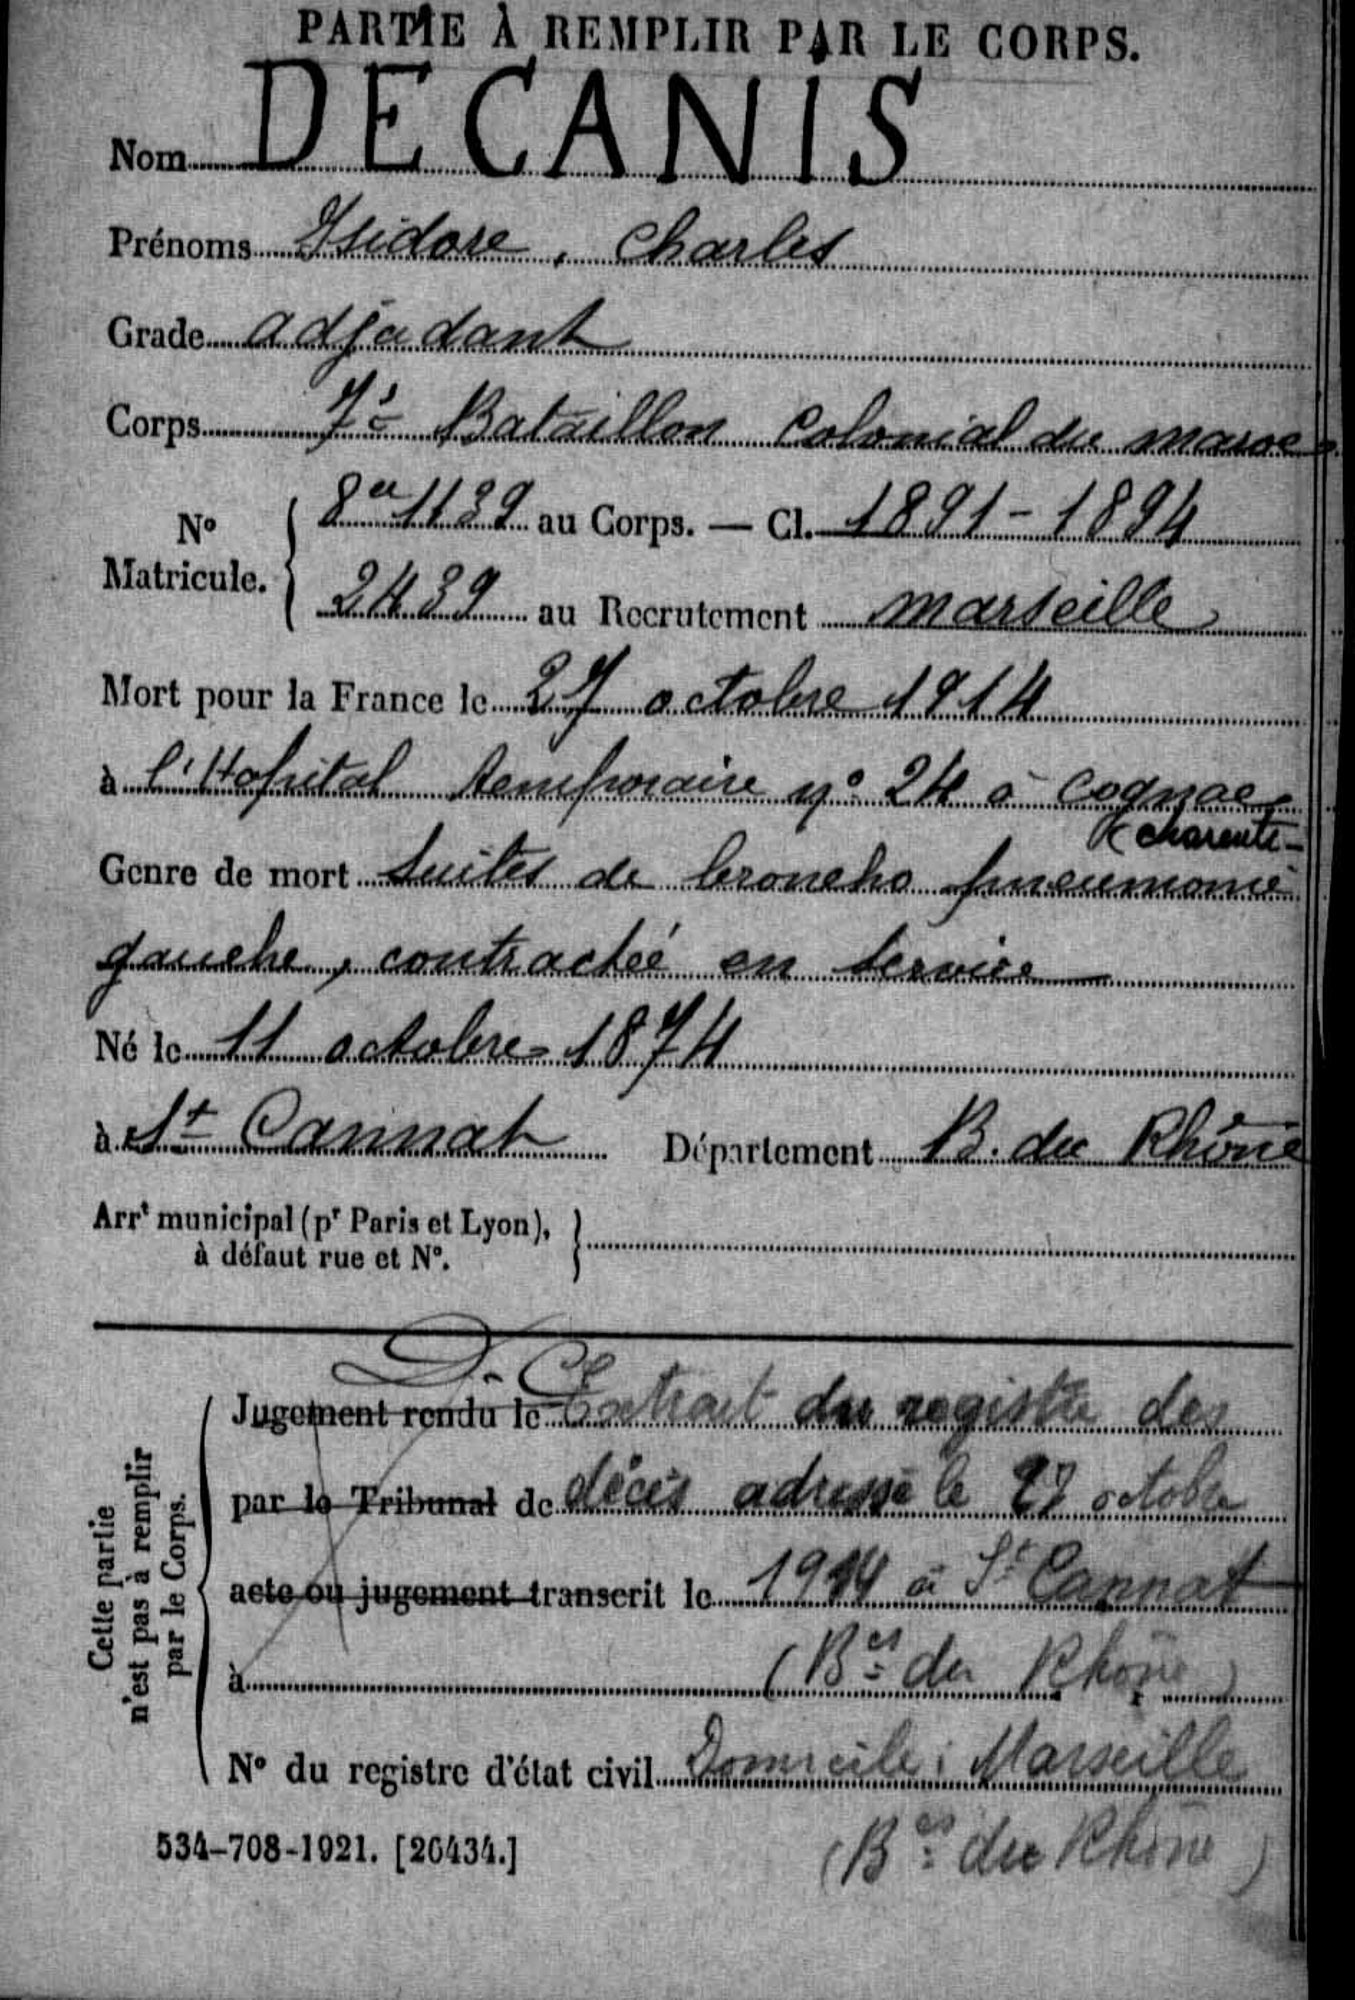 PARTIE À REMPLIR PAR LE CORPS.
Nom DECANIS
Prénoms Isidore, Charles
Grade adjudant
Corps 7è Bataillon Colonial du maroc
N° Matricule. 1139 au Corps. — Cl. 1891-1894
2439 au Recrutement marseille
Mort pour la France le 27 octobre 1914
à l'Hopital temporaire n° 24 à Cognac
(charente
Genre de mort suites de broncho pneumonie
gauche, contractée en service
Né le 11 octobre 1874
à St Cannat Département B. du Rhône
Arrt municipal (pr Paris et Lyon),
à défaut rue et N°.
Cette partie
n'est pas à remplir
par le Corps.
Jugement rendu le Extrait du registre des
par le Tribunal de décès adressé le octobre
acte ou jugement transcrit le 1914 à St Cannat
à (Bes du Rhône)
N° du registre d'état civil Domicile : Marseille
534-708-1921. [26434.] (Bes du Rhône)